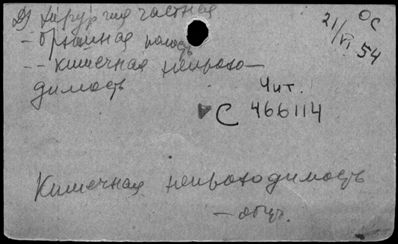 Д) Хирургия частная
- брюшная полость
-- кишечная непрохо-
димость
ОС
21/VI 54
Чит.
С 466114
Кишечная непроходимость
- общ.